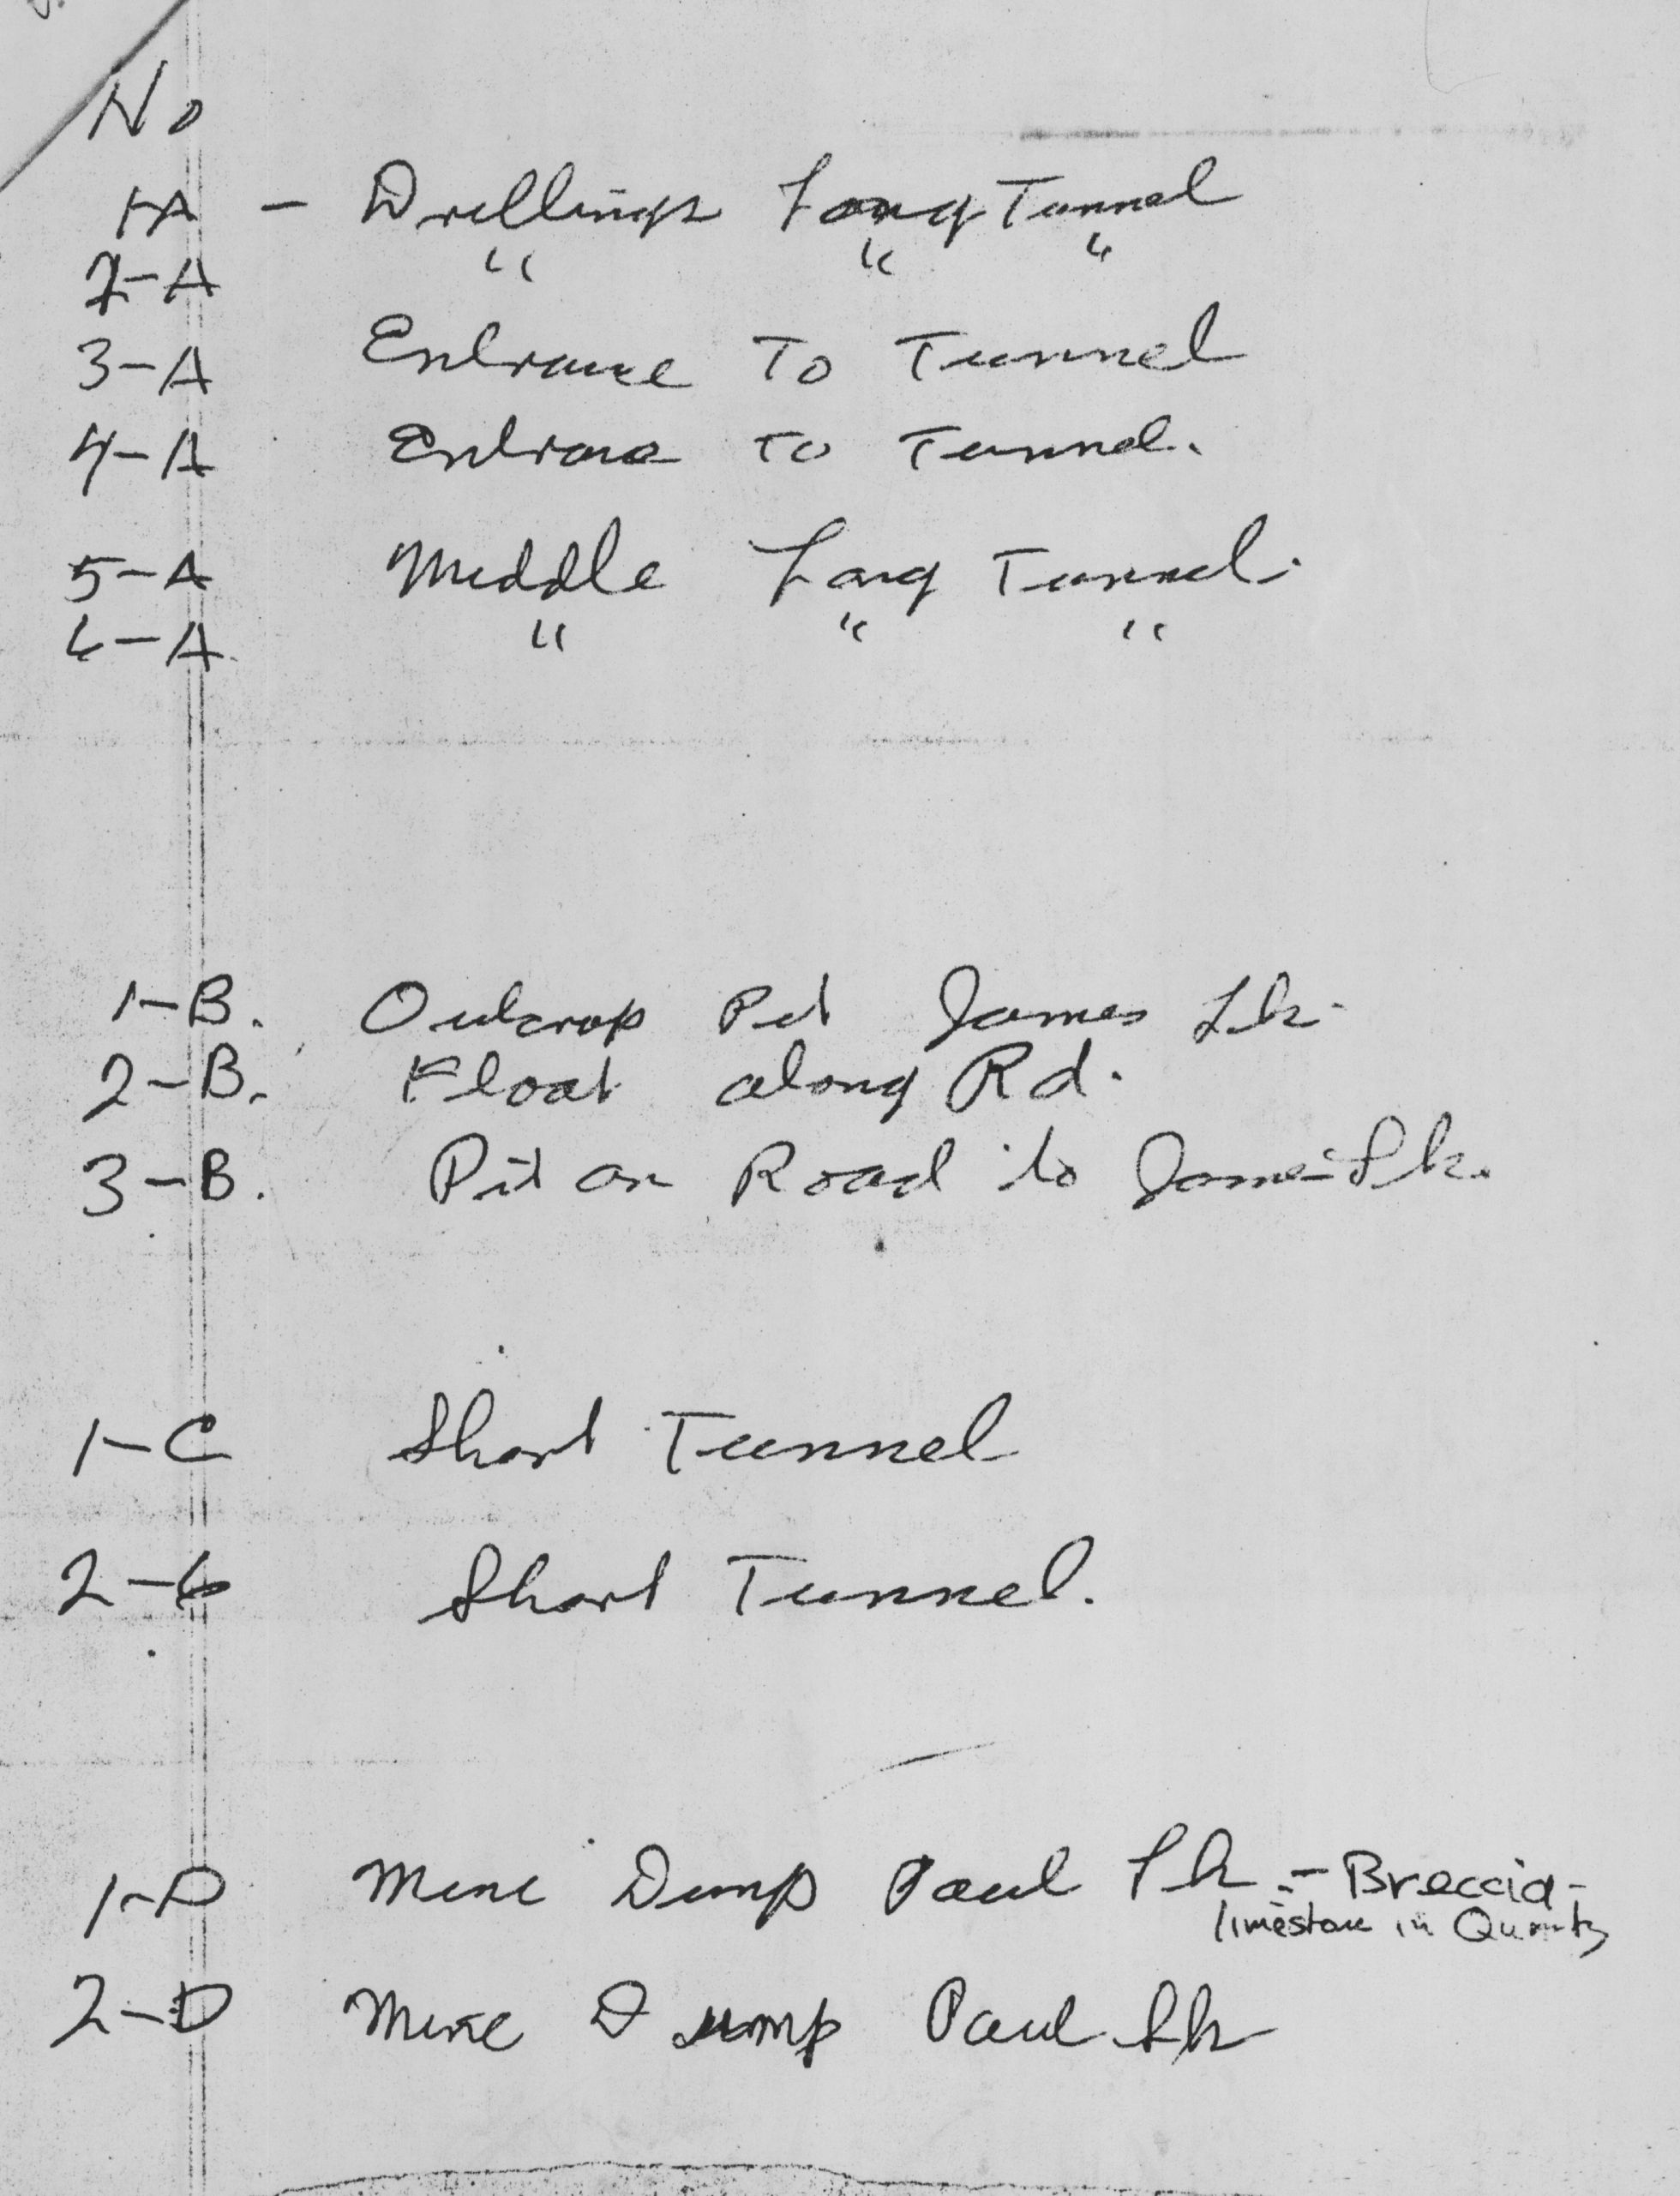 No
1-A - Drillings Long Tunnel
2-A " " "
3-A Entrance To Tunnel
4-A Entrance To Tunnel.
5-A Middle Long Tunnel.
6-A " " "
1-B. Outcrop Pit James Lk.
2-B. Float along Rd.
3-B. Pit on Road to James Lk.
1-C Short Tunnel
2-C Short Tunnel.
1-D Mine Dump Paul Lk - Breccia -
limestone in Quartz
2-D Mine Dump Paul Lk